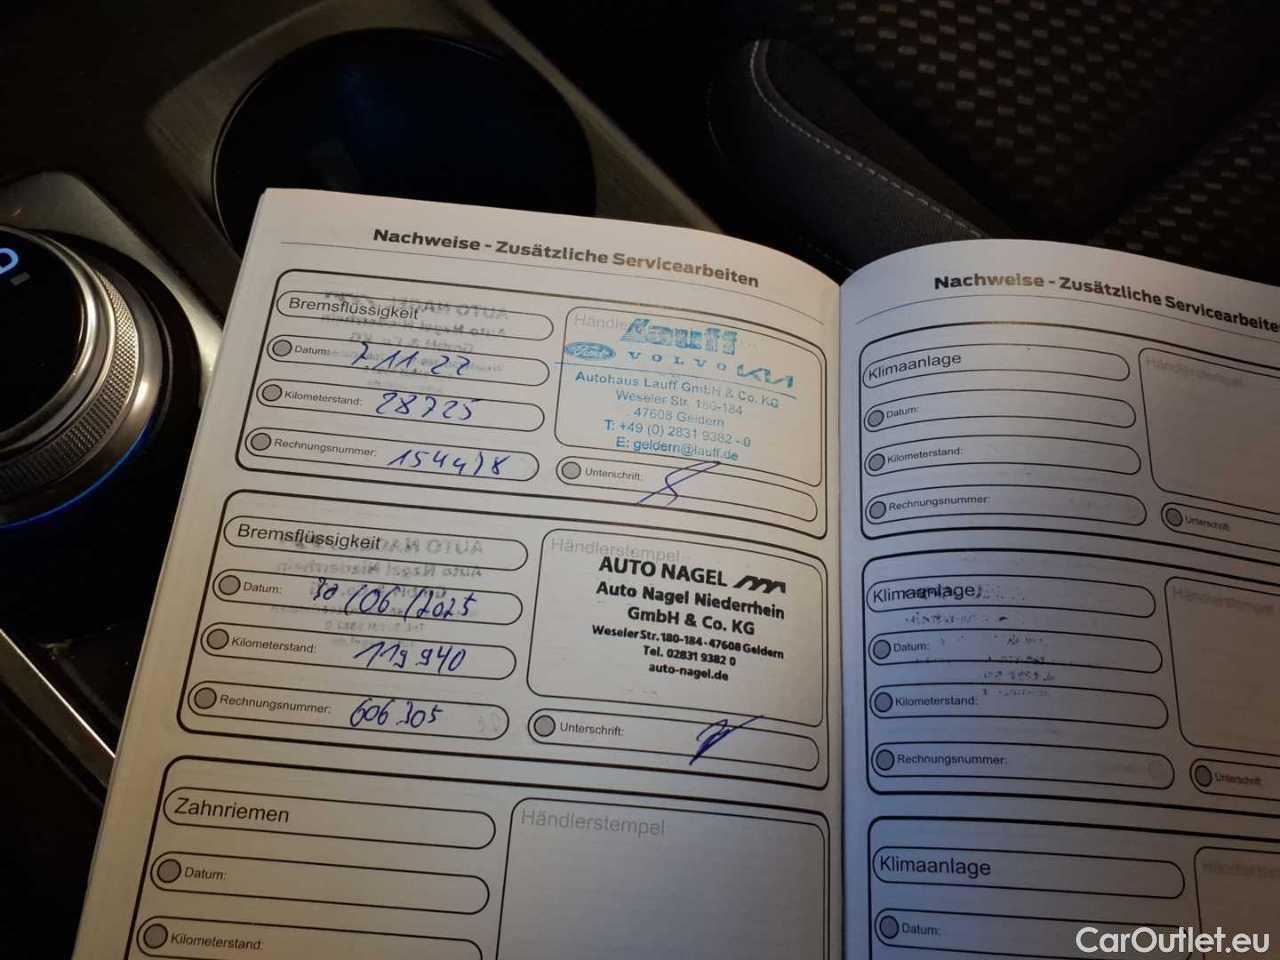 Nachweise - Zusätzliche Servicearbeiten
Bremsflüssigkeit
Datum: 7.11.22
Kilometerstand: 28725
Rechnungsnummer:
Händler
Lauff
Ford VOLVO KIA
Autohaus Lauff GmbH & Co. KG
Weseler Str. 180-184
47608 Geldern
T: +49 (0) 2831 9382 - 0
E: geldern@lauff.de
Unterschrift:
Bremsflüssigkeit
Datum: 30/06/2025
Kilometerstand: 119 940
Rechnungsnummer: 606305
Händlerstempel
AUTO NAGEL
Auto Nagel Niederrhein
GmbH & Co. KG
Weseler Str. 180-184 - 47608 Geldern
Tel. 02831 9382 0
auto-nagel.de
Unterschrift:
Zahnriemen
Datum:
Kilometerstand:
Händlerstempel
Nachweise - Zusätzliche Servicearbeite
Klimaanlage
Datum:
Kilometerstand:
Rechnungsnummer:
Händlerstempel
Unterschrift
Klimaanlage
Datum:
Kilometerstand:
Rechnungsnummer:
Händlerstempel
Unterschrift
Klimaanlage
Datum:
Händlerste
CarOutlet.eu